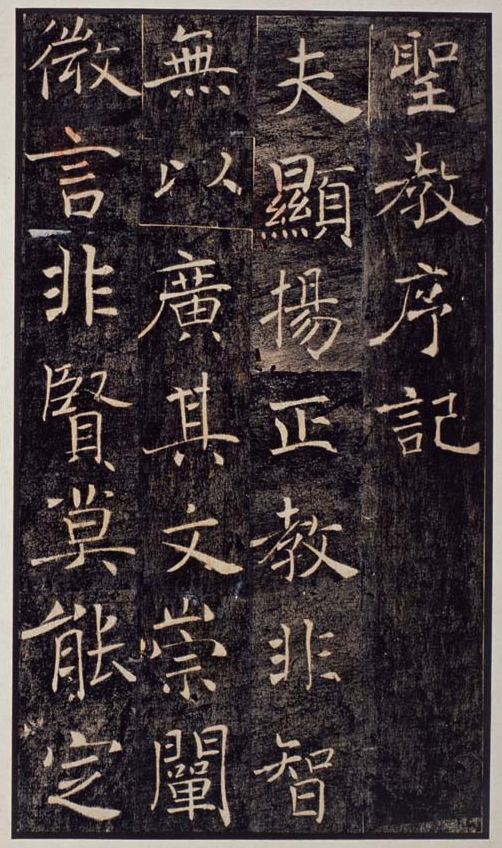 聖教序記
夫顯揚正教非智
無以廣其文崇闡
微言非賢莫能定